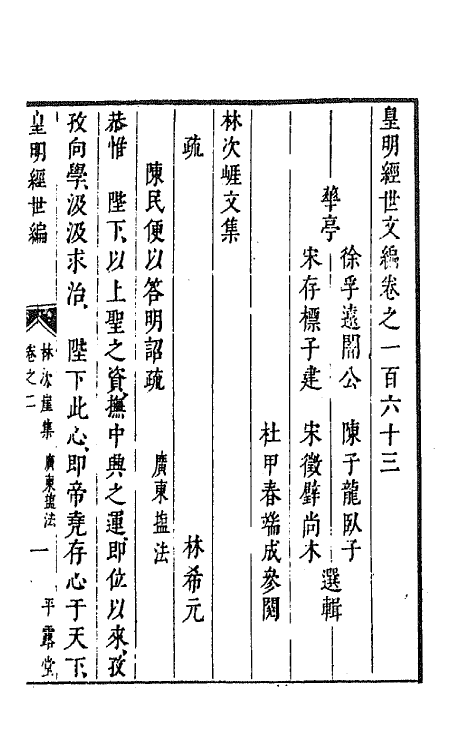 皇明經世文編卷之一百六十三
華亭
徐孚遠闇公 陳子龍臥子
宋存標子建 宋徵璧尚木
選輯
杜甲春端成參閱
林次崖文集
林希元
疏
陳民便以答明詔疏 廣東塩法
恭惟 陛下、以上聖之資、撫中興之運、即位以來、孜
孜向學、汲汲求治、 陛下此心、即帝堯存心于天下、
皇明經世編 林次崖集 廣東塩法 卷之二 一 平露堂